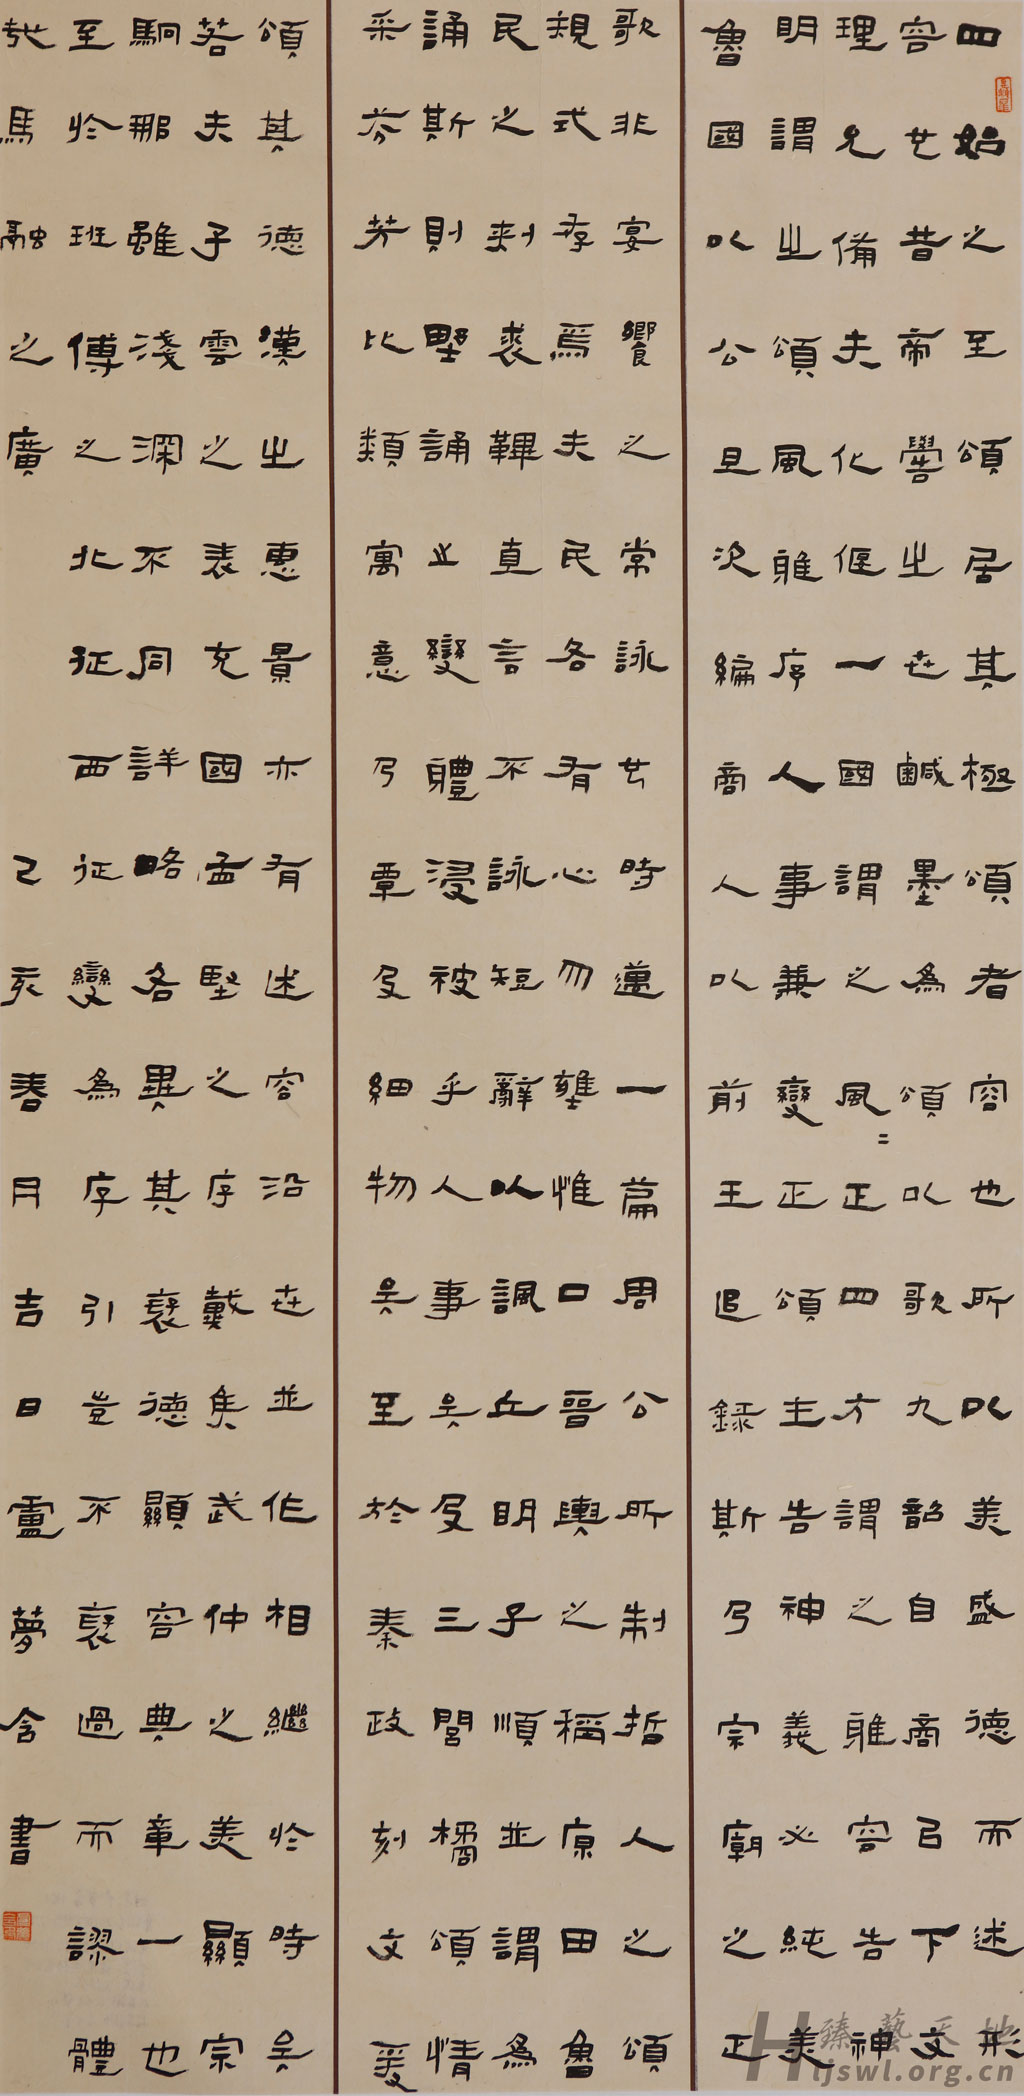 四始之至頌居其極頌者容也所以美盛德而述形
容也昔帝嚳之世鹹墨為頌以歌九韶自商已下文
理允備夫化偃一國謂之風〻正四方謂之雅容告神
明謂之頌風雅序人事兼變正頌主告神義必純美
魯國以公旦次編商人以前王追錄斯乃宗廟之正
歌非宴饗之常詠也時邁一篇周公所制哲人之頌
規式存焉夫民各有心勿壅惟口晉輿之稱原田魯
民之刺裘鞸直言不詠短辭以諷丘明子順並謂為
誦斯則野誦之變體浸被乎人事矣及三閭橘頌情
采芬芳比類寓意乃覃及細物矣至於秦政刻文爰
頌其德漢之惠景亦有述容沿世並作相繼於時矣
若夫子雲之表充國孟堅之序戴侯武仲之美顯宗
駉那雖淺深不同詳略各異其褒德顯容典章一也
至於班傅之北征西征變為序引豈不褒過而謬體
哉馬融之廣 己亥春月吉日盧夢含書
臻藝天地
Hljswl.org.cn